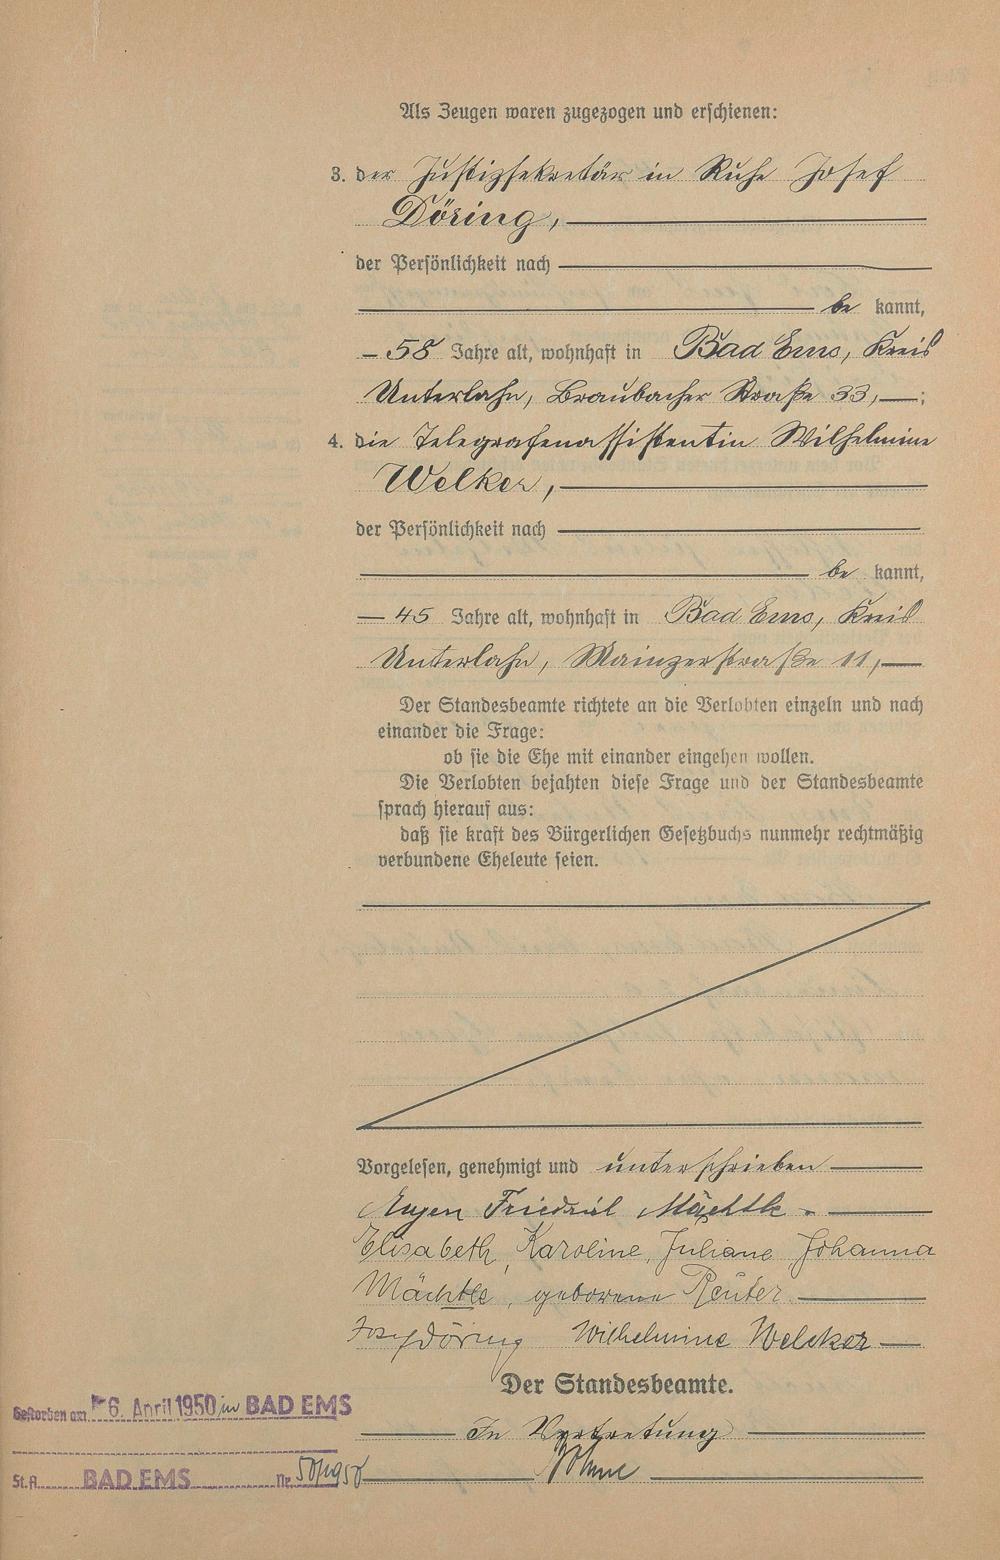 Als Zeugen waren zugezogen und erschienen:
3. der Justizsekretär in Ruhe Josef
Döring,
der Persönlichkeit nach
be kannt,
58 Jahre alt, wohnhaft in Bad Ems, Kreis
Unterlahn, Braubacher Straße 33,;
4. die Telegrafenassistentin Wilhelmine
Welker,
der Persönlichkeit nach
be kannt,
45 Jahre alt, wohnhaft in Bad Ems, Kreis
Unterlahn, Mainzerstraße 11,
Der Standesbeamte richtete an die Verlobten einzeln und nach
einander die Frage:
ob sie die Ehe mit einander eingehen wollen.
Die Verlobten bejahten diese Frage und der Standesbeamte
sprach hierauf aus:
daß sie kraft des Bürgerlichen Gesetzbuchs nunmehr rechtmäßig
verbundene Eheleute seien.
Vorgelesen, genehmigt und unterschrieben
Eugen Friedrich Mächtle
Elisabeth, Karoline, Juliane Johanna
Mächtle, geborene Reuter.
Josef Döring Wilhelmine Welcker
Der Standesbeamte.
In Vertretung
Gestorben am 6. April 1950 in BAD EMS
St.A. BAD EMS Nr. 50/1950